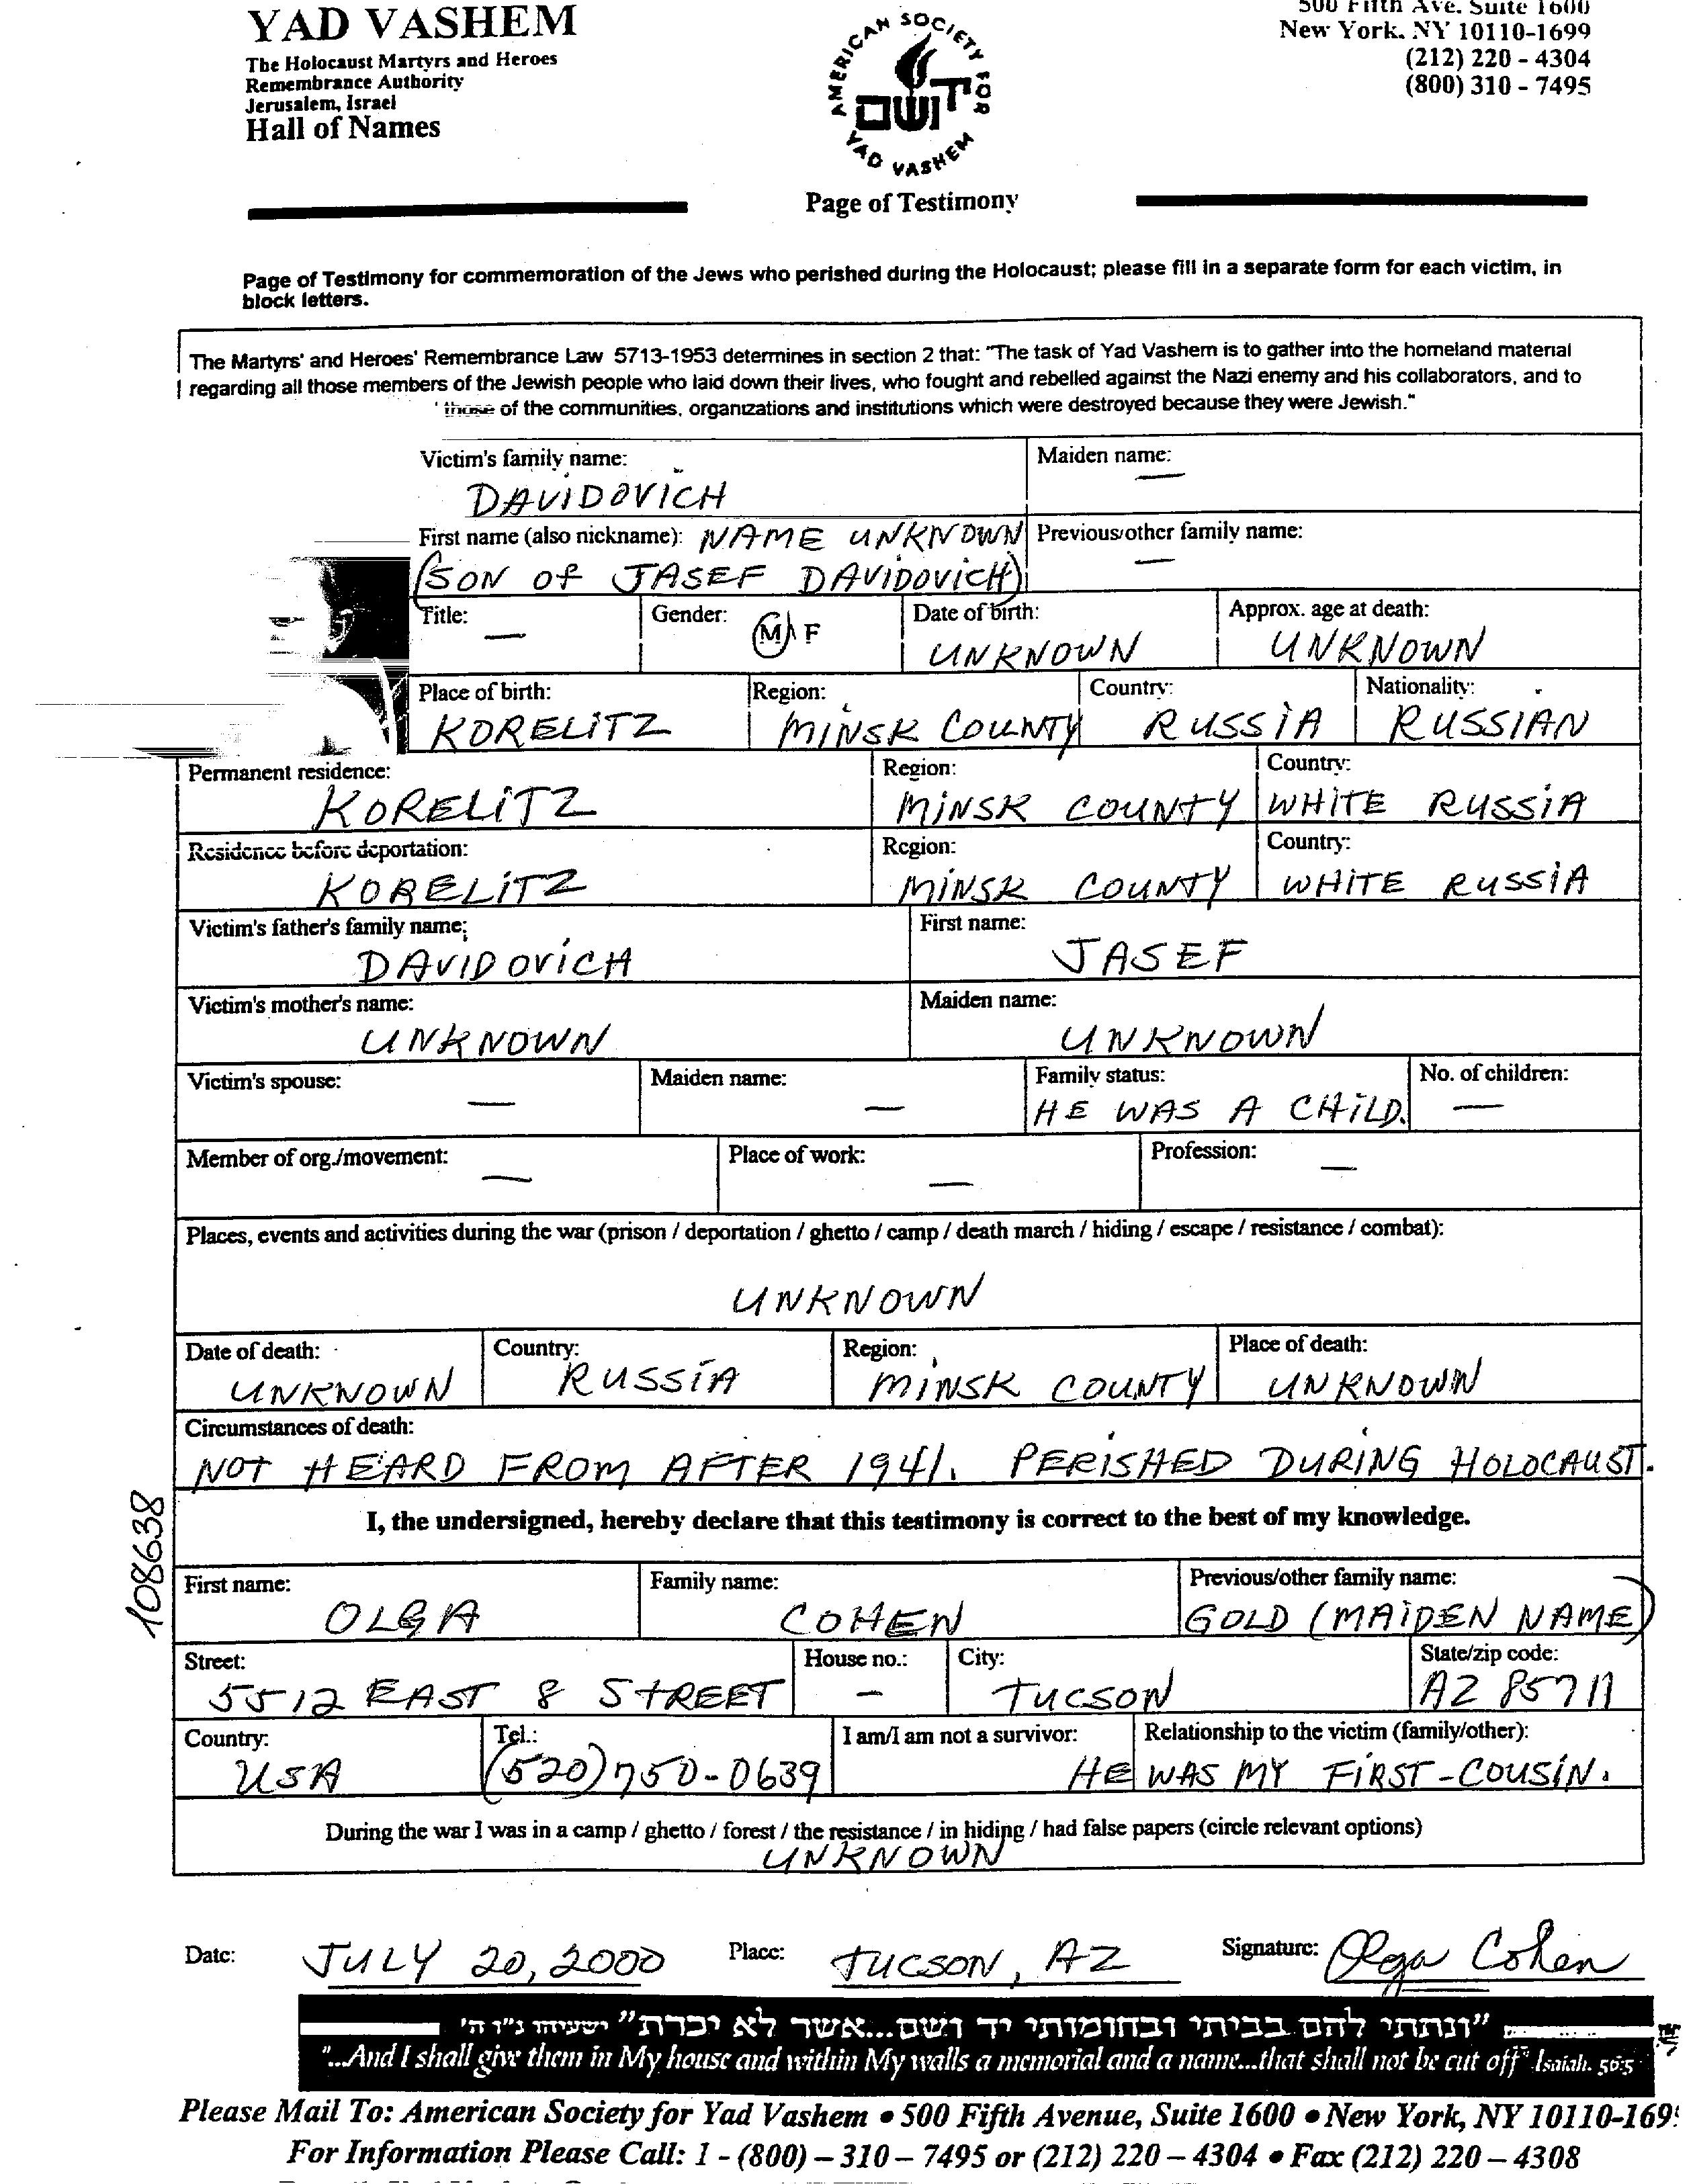 YAD VASHEM
The Holocaust Martyrs and Heroes
Remembrance Authority
Jerusalem, Israel
Hall of Names
AMERICAN SOCIETY FOR
יד ושם
YAD VASHEM
500 Fifth Ave. Suite 1600
New York. NY 10110-1699
(212) 220 - 4304
(800) 310 - 7495
Page of Testimony
Page of Testimony for commemoration of the Jews who perished during the Holocaust; please fill in a separate form for each victim, in
block letters.
The Martyrs' and Heroes' Remembrance Law 5713-1953 determines in section 2 that: "The task of Yad Vashem is to gather into the homeland material
regarding all those members of the Jewish people who laid down their lives, who fought and rebelled against the Nazi enemy and his collaborators, and to
those of the communities, organizations and institutions which were destroyed because they were Jewish."
Victim's family name: Maiden name:
DAVIDOVICH —
First name (also nickname): NAME UNKNOWN Previous/other family name:
(SON OF JASEF DAVIDOVICH) —
Title: Gender: M F Date of birth: Approx. age at death:
— UNKNOWN UNKNOWN
Place of birth: Region: Country: Nationality:
KORELITZ MINSK COUNTY RUSSIA RUSSIAN
Permanent residence: Region: Country:
KORELITZ MINSK COUNTY WHITE RUSSIA
Residence before deportation: Region: Country:
KORELITZ MINSK COUNTY WHITE RUSSIA
Victim's father's family name: First name:
DAVIDOVICH JASEF
Victim's mother's name: Maiden name:
UNKNOWN UNKNOWN
Victim's spouse: Maiden name: Family status: No. of children:
— — HE WAS A CHILD. —
Member of org./movement: Place of work: Profession:
— — —
Places, events and activities during the war (prison / deportation / ghetto / camp / death march / hiding / escape / resistance / combat):
UNKNOWN
Date of death: Country: Region: Place of death:
UNKNOWN RUSSIA MINSK COUNTY UNKNOWN
Circumstances of death:
NOT HEARD FROM AFTER 1941. PERISHED DURING HOLOCAUST.
108638
I, the undersigned, hereby declare that this testimony is correct to the best of my knowledge.
First name: Family name: Previous/other family name:
OLGA COHEN GOLD (MAIDEN NAME)
Street: House no.: City: State/zip code:
5512 EAST 8 STREET - TUCSON AZ 85711
Country: Tel.: I am/I am not a survivor: Relationship to the victim (family/other):
USA (520) 750-0639 HE WAS MY FIRST-COUSIN.
During the war I was in a camp / ghetto / forest / the resistance / in hiding / had false papers (circle relevant options)
UNKNOWN
Date: JULY 20, 2000 Place: TUCSON, AZ Signature: Olga Cohen
"ונתתי להם בביתי ובחומותי יד ושם...אשר לא יכרת" ישעיהו נ"ו ה'
"...And I shall give them in My house and within My walls a memorial and a name...that shall not be cut off" Isaiah. 56:5
Please Mail To: American Society for Yad Vashem • 500 Fifth Avenue, Suite 1600 • New York, NY 10110-169
For Information Please Call: 1 - (800) – 310 – 7495 or (212) 220 – 4304 • Fax (212) 220 – 4308